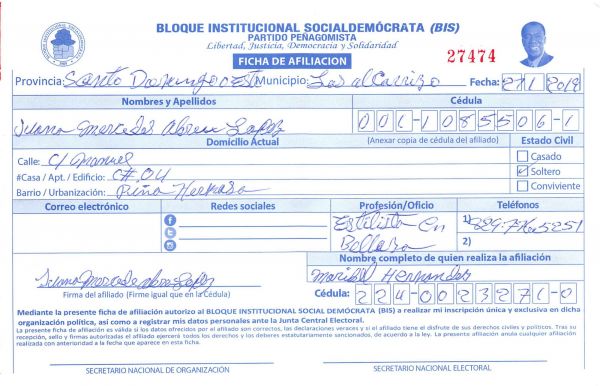 BLOQUE INSTITUCIONAL SOCIALDEMÓCRATA (BIS)
PARTIDO PEÑAGOMISTA
Libertad, Justicia, Democracia y Solidaridad
FICHA DE AFILIACION
27474
Provincia: Santo Domingo oeste Municipio: Los alcarrizo Fecha: 2019
Nombres y Apellidos Cédula
Juana mercedes Abreu Lopez 001-1085506-1
Domicilio Actual (Anexar copia de cédula del afiliado) Estado Civil
Calle: C/ manuel Casado
#Casa / Apt. / Edificio: C#.04 Soltero
Barrio / Urbanización: Peña Conviviente
Correo electrónico Redes sociales Profesión/Oficio Teléfonos
Estilista En 1) 829-776-5251
Belleza 2)
Nombre completo de quien realiza la afiliación
Juana Mercede abreu Lopez Maribel Hernandez
Firma del afiliado (Firme igual que en la Cédula) Cédula: 224-0023271-0
Mediante la presente ficha de afiliación autorizo al BLOQUE INSTITUCIONAL SOCIAL DEMÓCRATA (BIS) a realizar mi inscripción única y exclusiva en dicha
organización política, así como a registrar mis datos personales ante la Junta Central Electoral.
La presente afiliación es válida si los datos ofrecidos por el afiliado son correctos, las declaraciones veraces y si el afiliado tiene el disfrute de sus derechos civiles y políticos. Tras su
recepción, sello y firmas autorizadas el afiliado ejercerá todos los derechos y los deberes estatutariamente sancionados, de acuerdo a la ley. La presente afiliación anula cualquier afiliación
realizada con anterioridad a la fecha que aparece en esta ficha.
SECRETARIO NACIONAL DE ORGANIZACIÓN SECRETARIO NACIONAL ELECTORAL